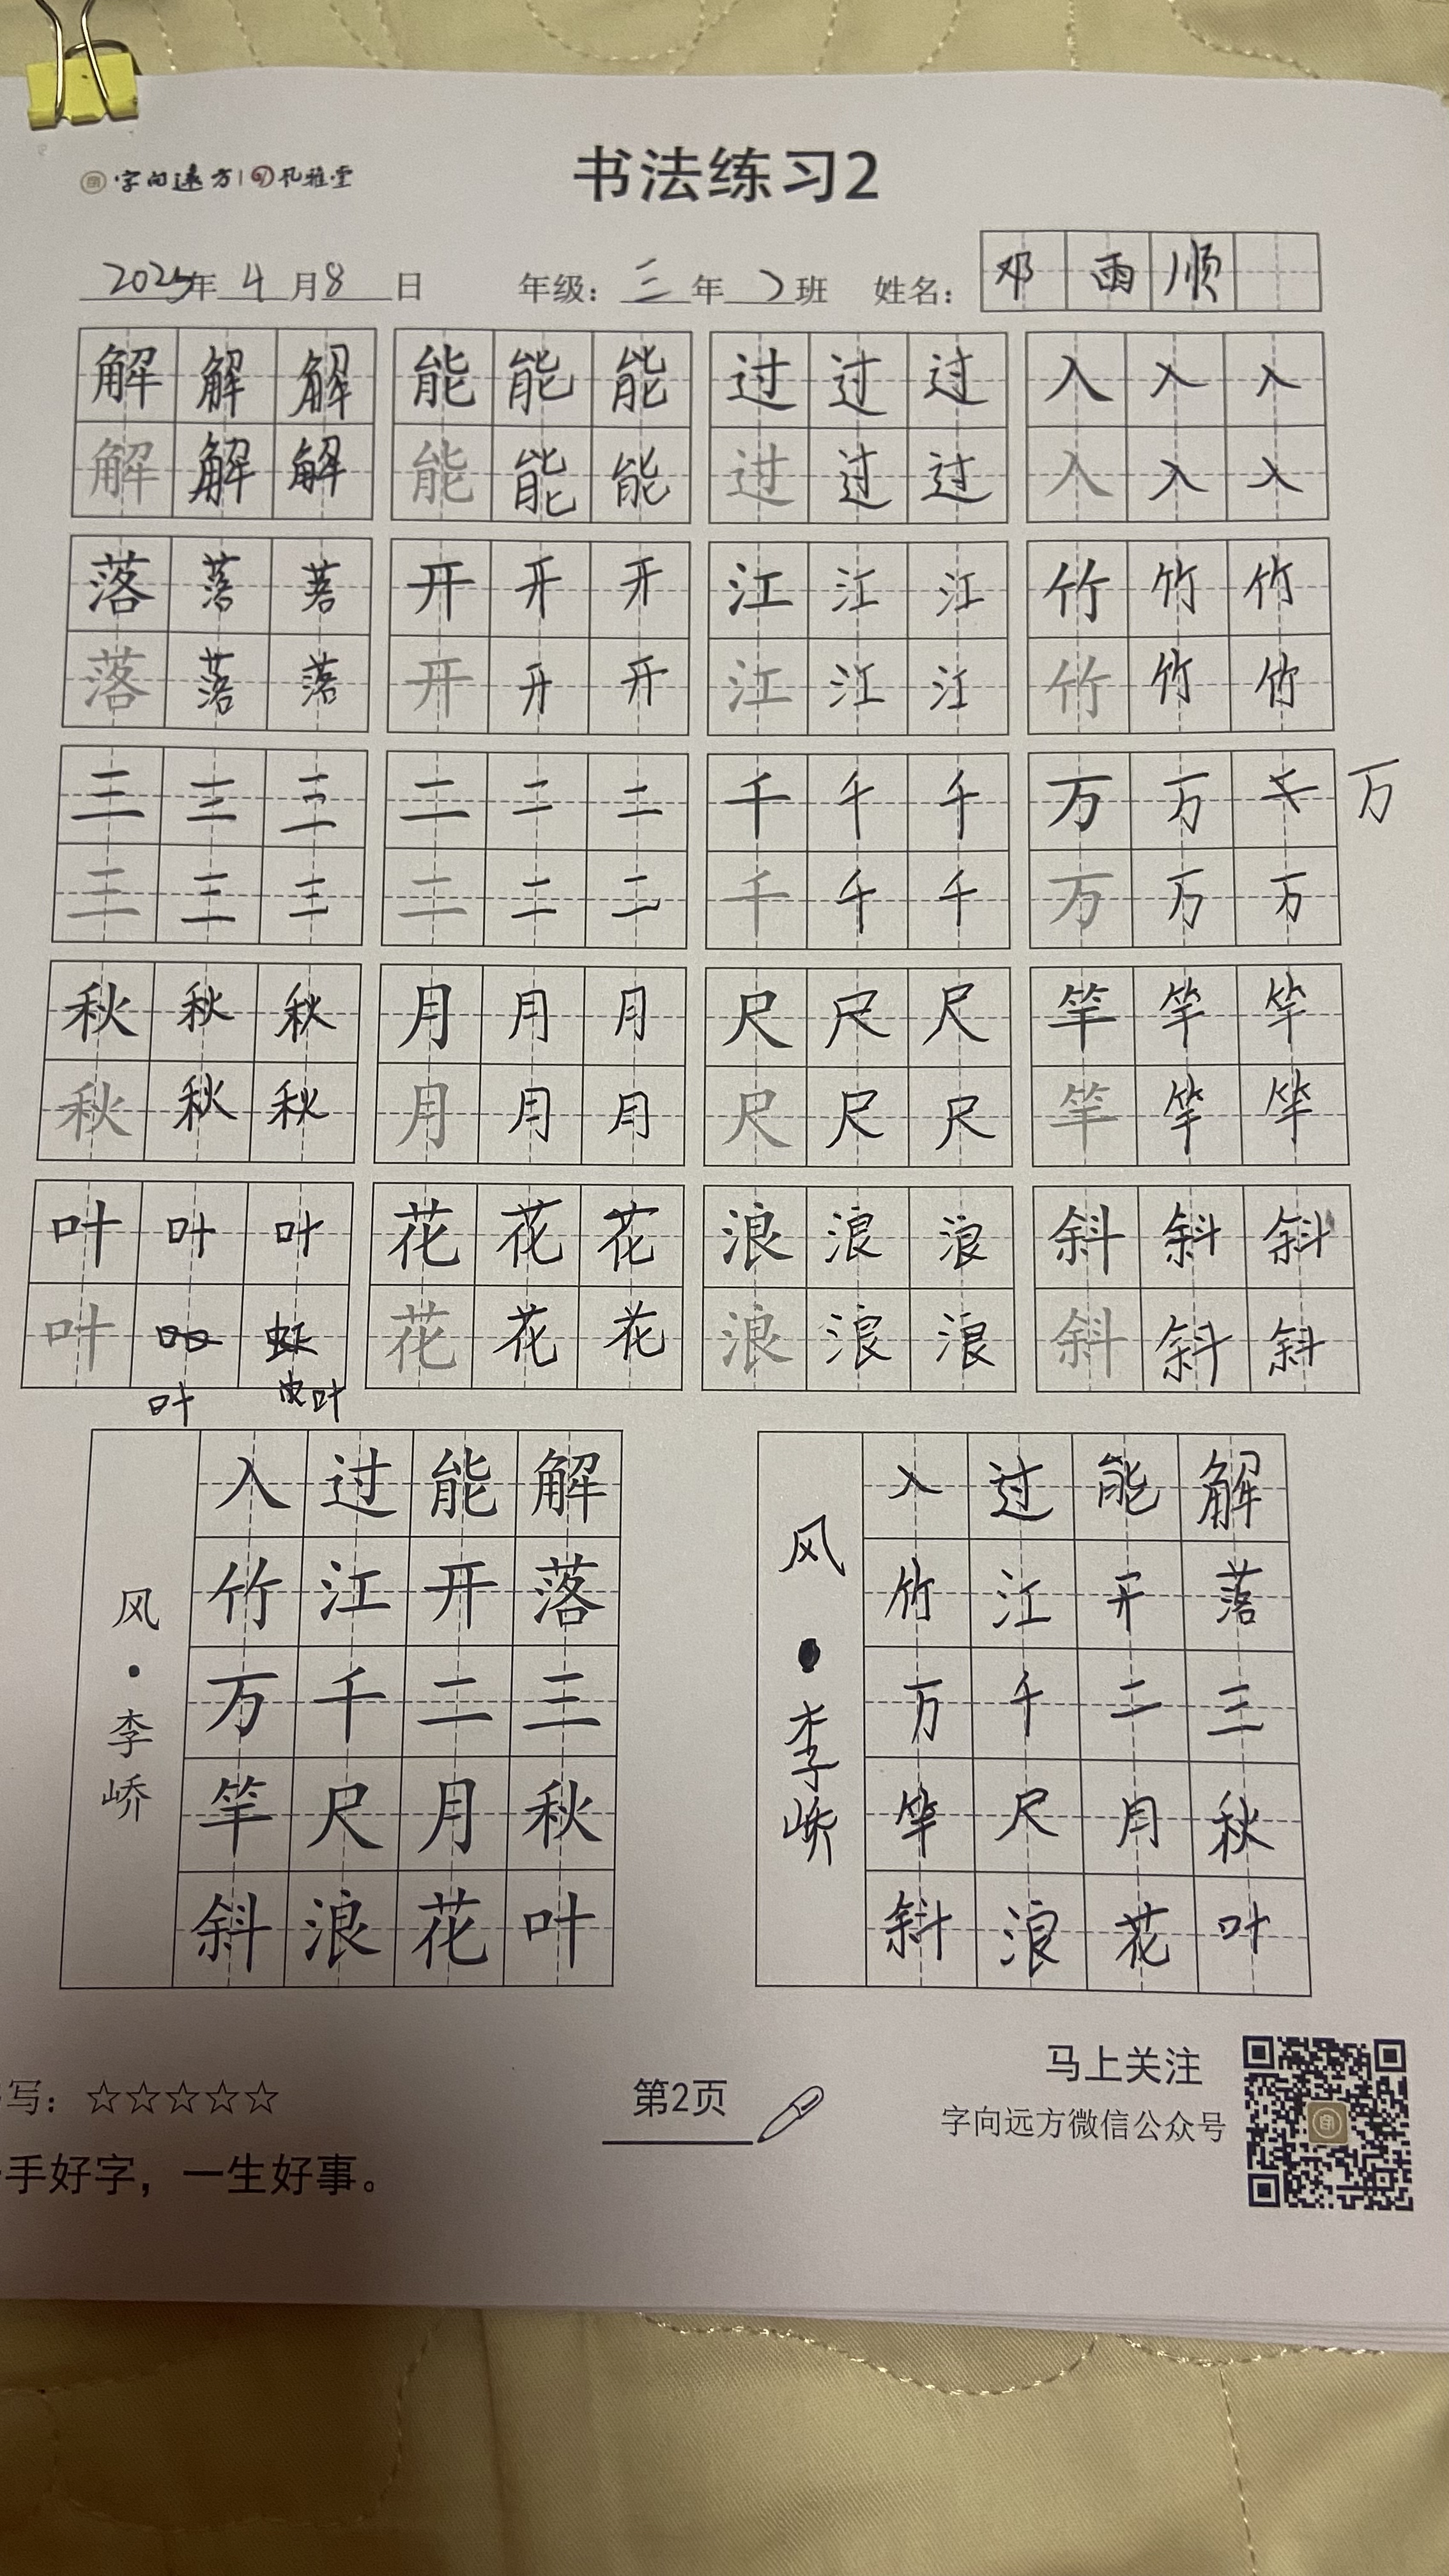 字向远方 | 孔雅堂
书法练习2
2025年4月8日 年级：三年2班 姓名：邓雨顺
解解解 能能能 过过过 入入入
解解解 能能能 过过过 入入入
落落落 开开开 江江江 竹竹竹
落落落 开开开 江江江 竹竹竹
三三三 二二二 千千千 万万千 万
三三三 二二二 千千千 万万万
秋秋秋 月月月 尺尺尺 竿竿竿
秋秋秋 月月月 尺尺尺 竿竿竿
叶叶叶 花花花 浪浪浪 斜斜斜
叶 花花花 浪浪浪 斜斜斜
叶 叶
解落三秋叶
能开二月花
过江千尺浪
入竹万竿斜
风·李峤
解落三秋叶
能开二月花
过江千尺浪
入竹万竿斜
风·李峤
写：☆☆☆☆☆
手好字，一生好事。
第2页
马上关注
字向远方微信公众号